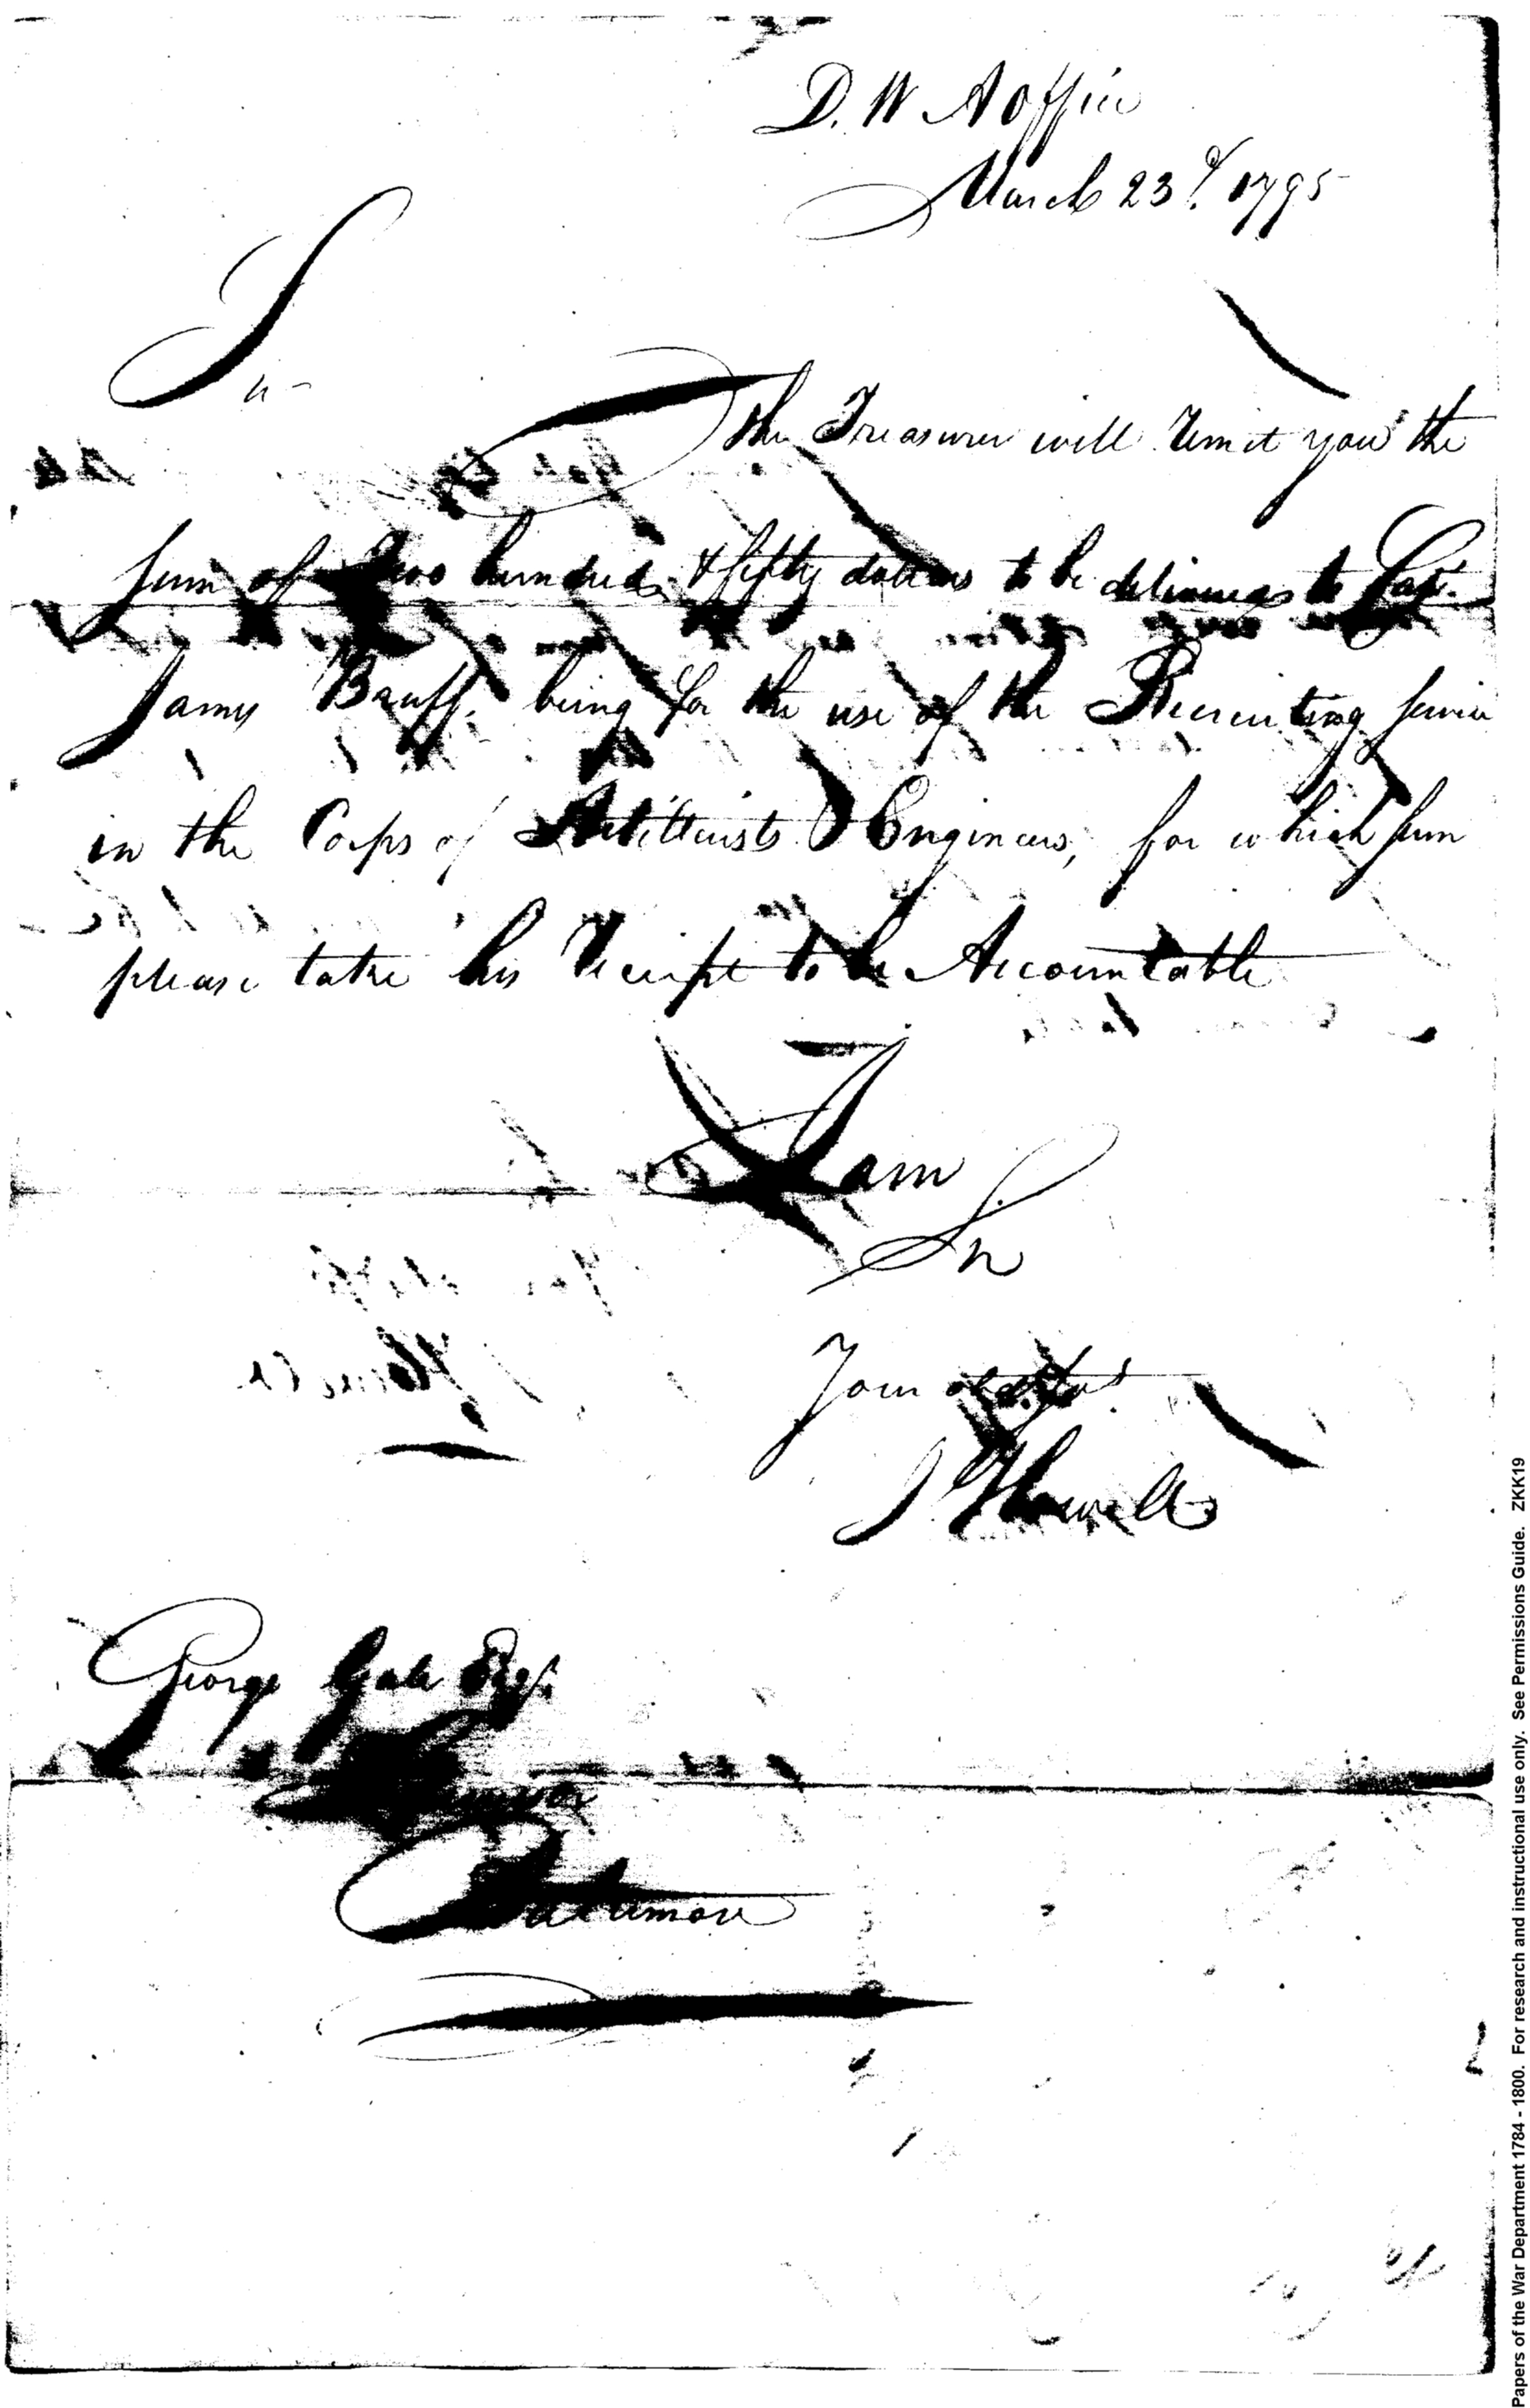 D. W A office
March 23d. 1795
Sir
The Treasurer will remit you the
sum of Two hundred & fifty dollars to be delivered to Capt.
James Bruff, being for the use of the Recruiting Service
in the Corps of Artillerists & Engineers, for which sum
please take his Receipt to be Accountable
I am
Sir
Your obt. Servt
J Howell
George Gale Esqr.
Baltimore
Papers of the War Department 1784 - 1800. For research and instructional use only. See Permissions Guide. ZKK19